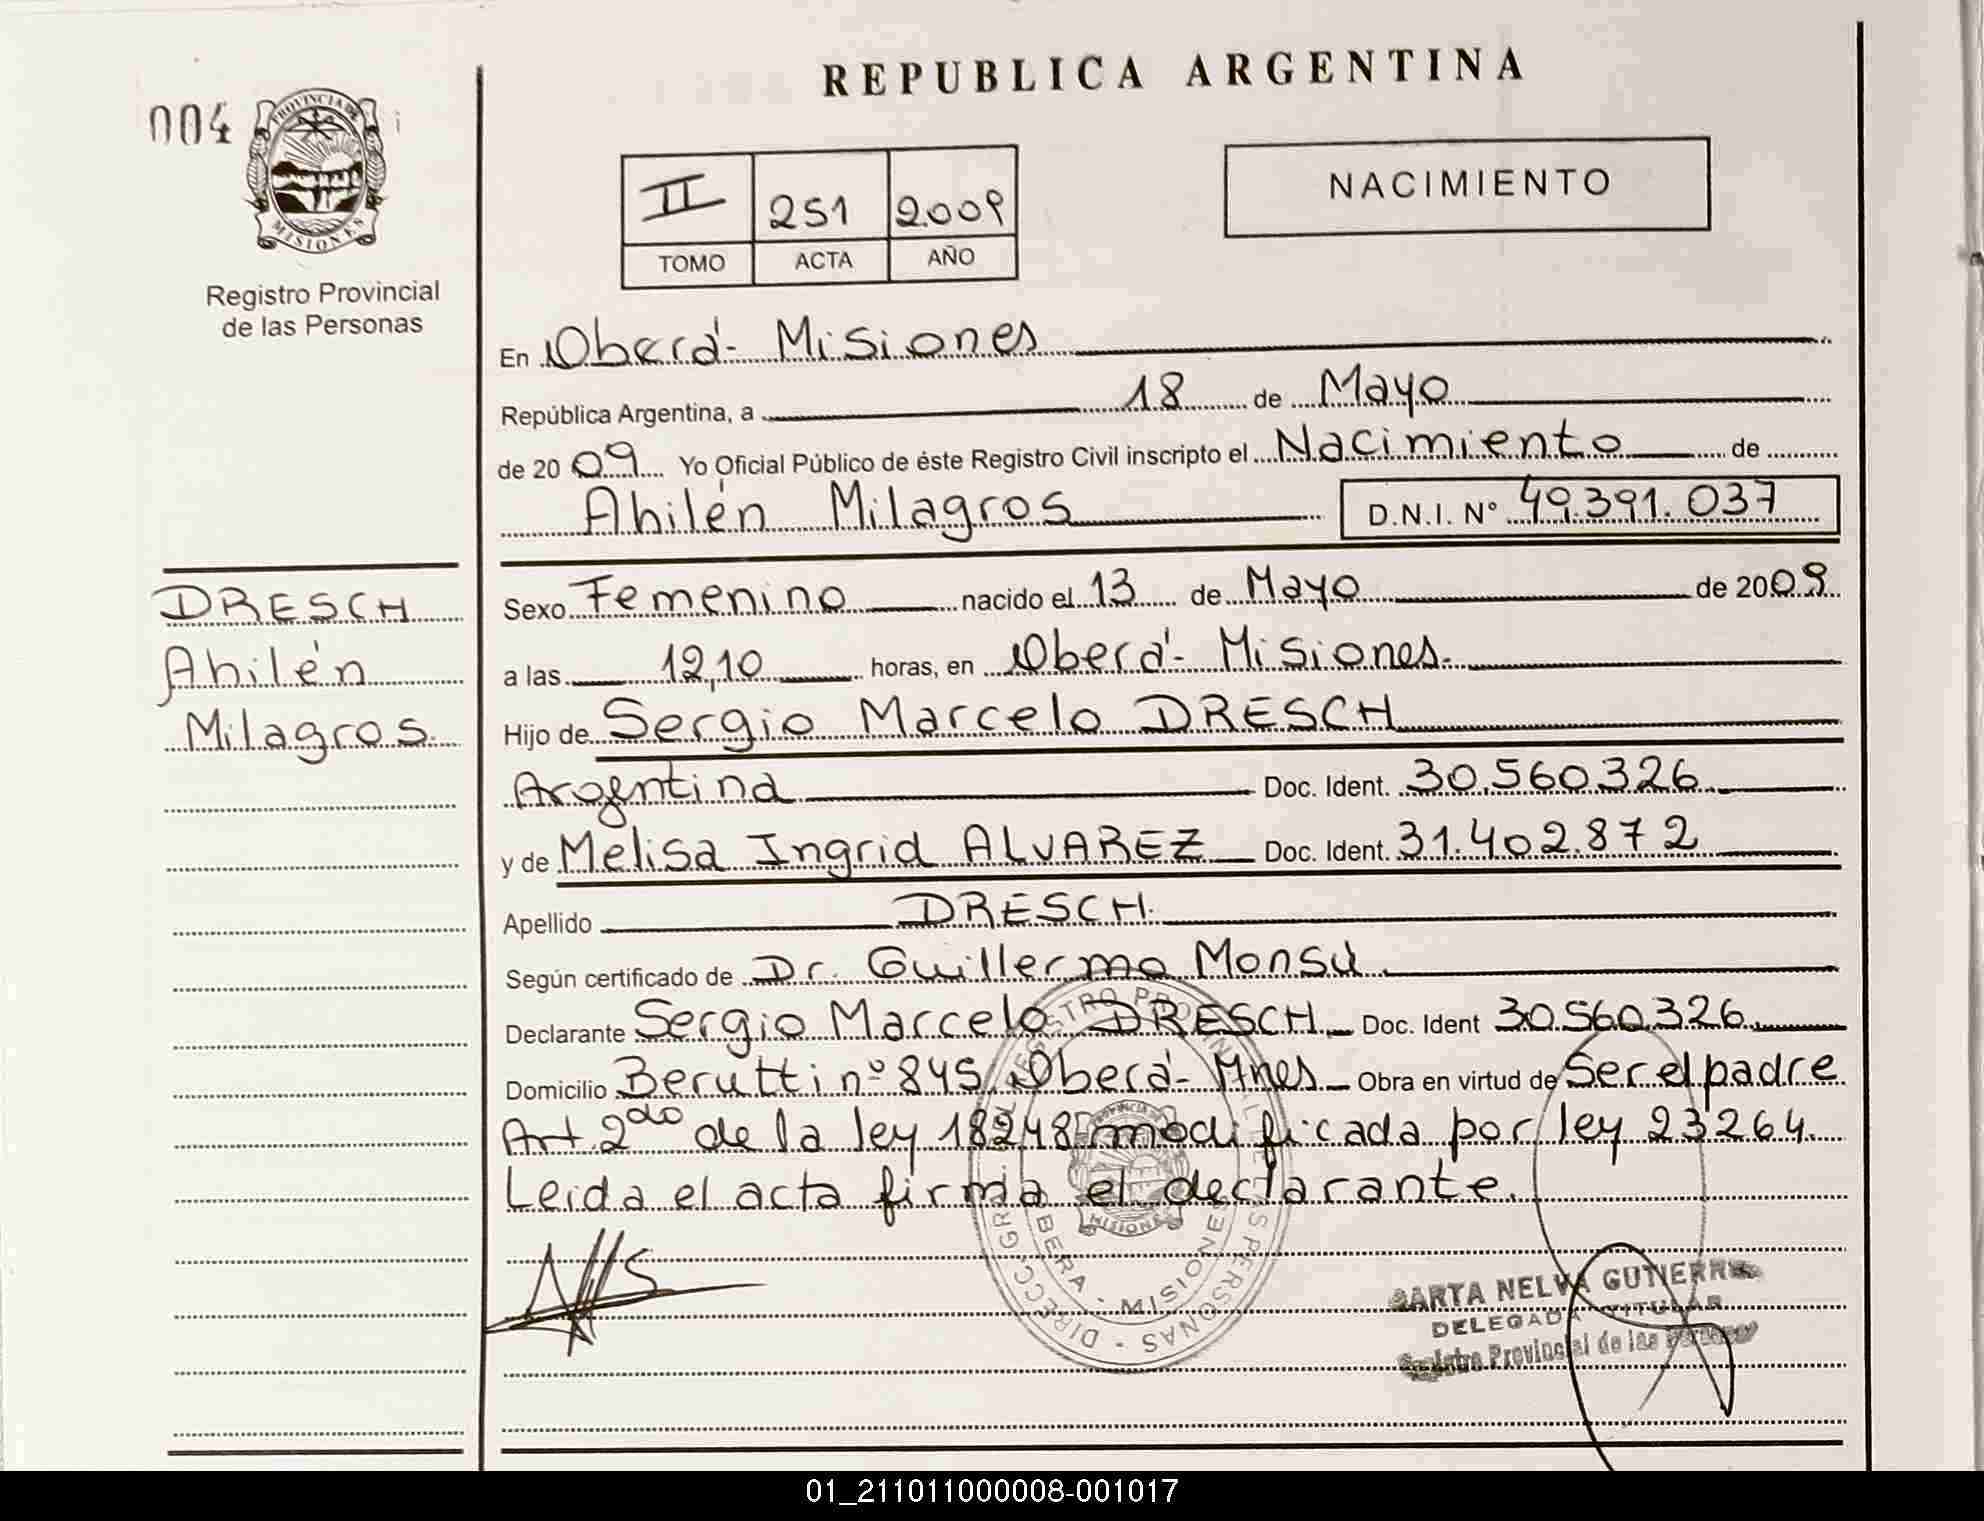 REPUBLICA ARGENTINA
004
PROVINCIA DE
MISIONES
Registro Provincial
de las Personas
II 251 2009
TOMO ACTA AÑO
NACIMIENTO
En Oberá - Misiones
República Argentina, a 18 de Mayo
de 2009 Yo Oficial Público de éste Registro Civil inscripto el Nacimiento de
Ahilén Milagros D.N.I. N° 49.391.037
DRESCH
Ahilén
Milagros.
Sexo Femenino nacido el 13 de Mayo de 2009
a las 12,10 horas, en Oberá - Misiones.
Hijo de Sergio Marcelo DRESCH
Argentina Doc. Ident. 30.560.326
y de Melisa Ingrid ALVAREZ Doc. Ident. 31.402.872
Apellido DRESCH.
Según certificado de Dr. Guillermo Monsú
Declarante Sergio Marcelo DRESCH Doc. Ident 30.560.326
Domicilio Berutti nº 845 Oberá - Mnes Obra en virtud de Ser el padre
Art. 2do de la ley 18248 modificada por ley 23264.
Leida el acta firma el declarante.
REGISTRO PROVINCIAL DE LAS PERSONAS - DIRECC GR
OBERA - MISIONES
MISIONES
MARTA NELVA GUTIERREZ
DELEGADA TITULAR
Registro Provincial de las Personas
01_211011000008-001017